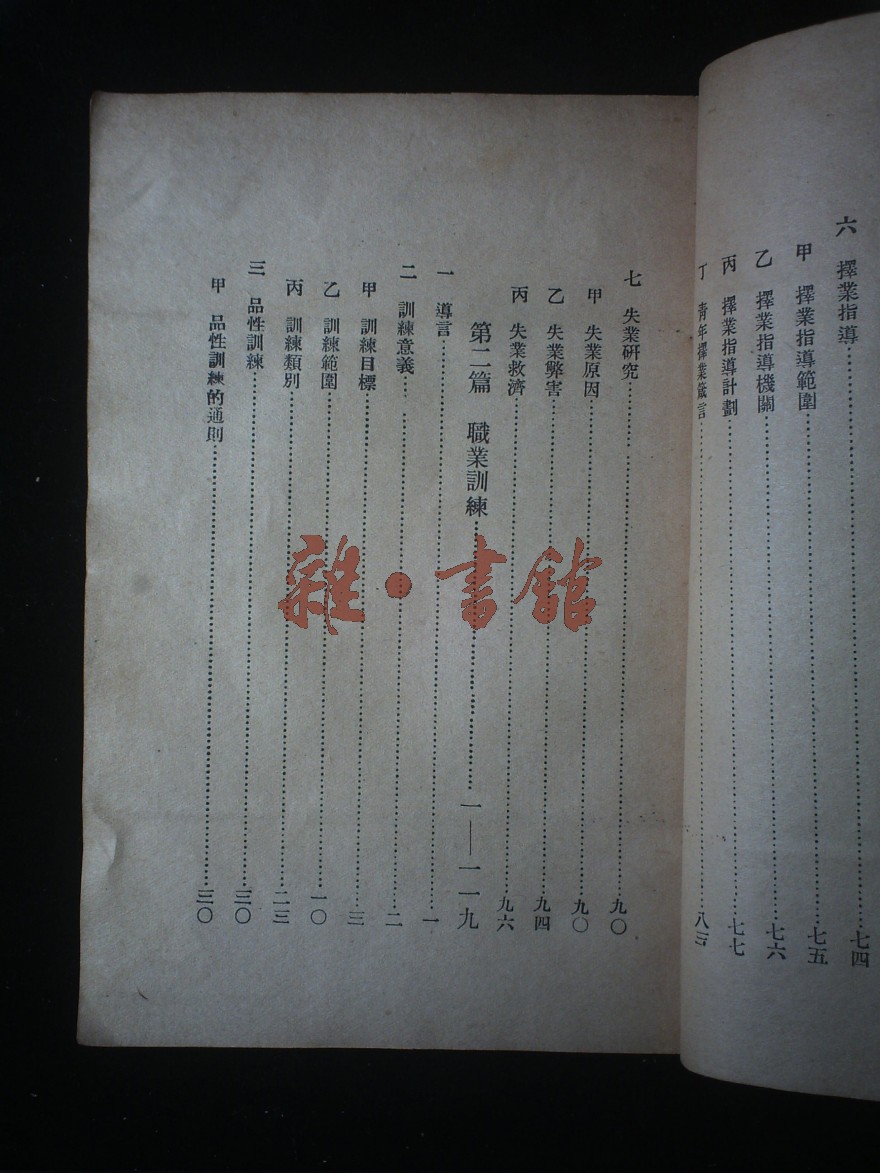 六　擇業指導……七四
甲　擇業指導範圍……七五
乙　擇業指導機關……七六
丙　擇業指導計劃……七七
丁　青年擇業箴言……八三
七　失業研究……九〇
甲　失業原因……九〇
乙　失業弊害……九四
丙　失業救濟……九六
第二篇　職業訓練……一—一一九
一　導言……一
二　訓練意義……二
甲　訓練目標……三
乙　訓練範圍……一〇
丙　訓練類別……二三
三　品性訓練……三〇
甲　品性訓練的通則……三〇
雜·書館